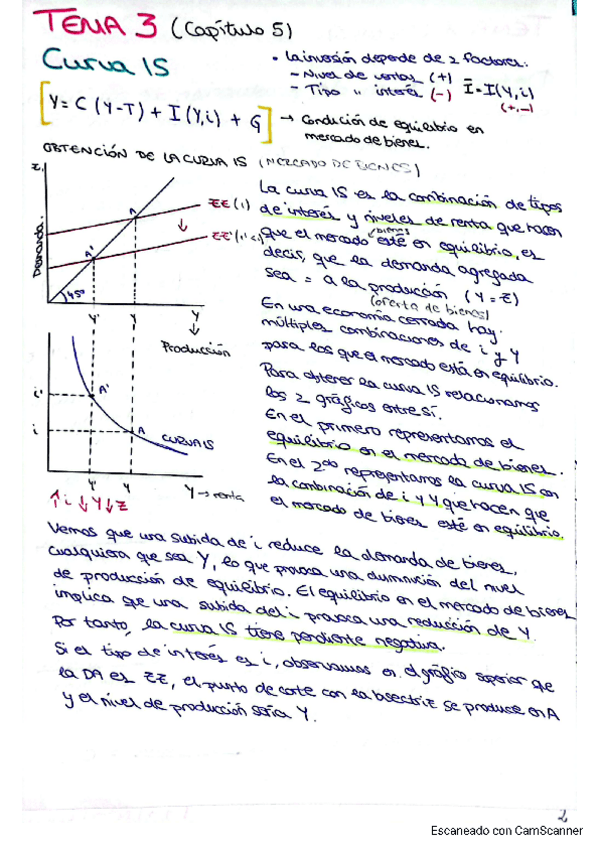 TEMA 3 (Capítulo 5)
Curva IS
• La inversión depende de 2 factores:
– Nivel de ventas (+)
– Tipo " interés (-)
I = I(Y,i)
(+,-)
Y = C (Y-T) + I (Y,i) + G
→ Condición de equilibrio en
mercado de bienes.
OBTENCIÓN DE LA CURVA IS (MERCADO DE BIENES)
Z,
Demanda.
A
A'
ZZ (i)
45º
Y'
Y
Y
Producción
i'
i
A'
A
CURVA IS
Y'
Y
Y → renta
↑i ↓Y ↓Z
La curva IS es la combinación de tipos
de interés y niveles de renta que hacen
que el mercado (bienes) esté en equilibrio, es
decir, que la demanda agregada
sea = a la producción (Y = Z)
(oferta de bienes)
En una economía cerrada hay
múltiples combinaciones de i y Y
para los que el mercado está en equilibrio.
Para obtener la curva IS relacionamos
los 2 gráficos entre sí.
En el primero representamos el
equilibrio en el mercado de bienes.
En el 2do representamos la curva IS con
la combinación de i y Y que hacen que
el mercado de bienes esté en equilibrio.
Vemos que una subida de i reduce la demanda de bienes,
cualquiera que sea Y, lo que provoca una disminución del nivel
de producción de equilibrio. El equilibrio en el mercado de bienes
implica que una subida del i provoca una reducción de Y.
Por tanto, la curva IS tiene pendiente negativa.
Si el tipo de interés es i, observamos en el gráfico superior que
la DA es ZZ, el punto de corte con la bisectriz se produce en A
y el nivel de producción sería Y.
2
Escaneado con CamScanner